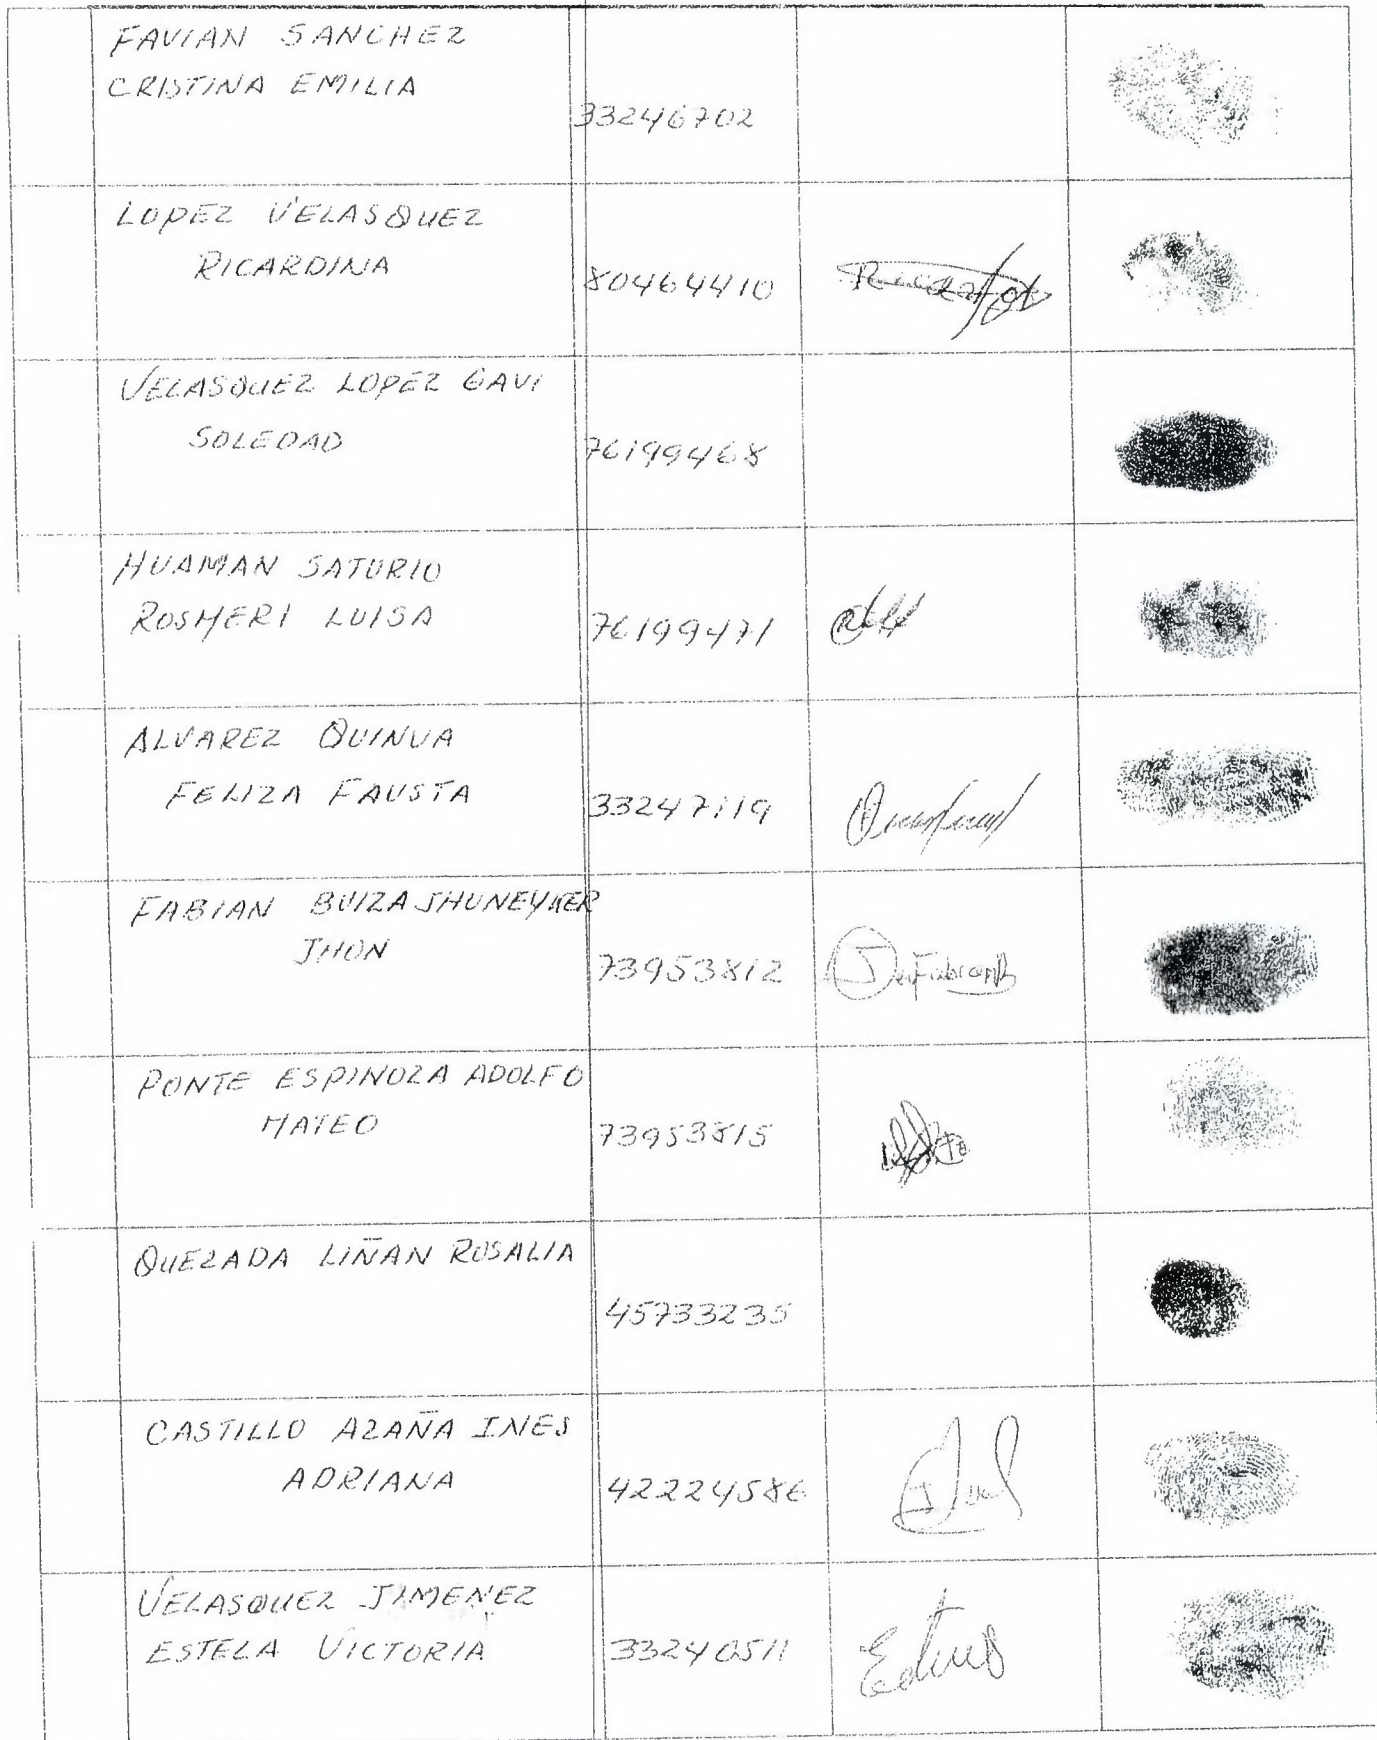 FAVIAN SANCHEZ
CRISTINA EMILIA
33246702
LOPEZ VELASQUEZ
RICARDINA
80464410
VELASQUEZ LOPEZ GAVI
SOLEDAD
76199468
HUAMAN SATURIO
ROSMERI LUISA
76199471
ALVAREZ QUINUA
FELIZA FAUSTA
33247119
FABIAN BUIZA JHUNEYKER
JHON
73953812
PONTE ESPINOZA ADOLFO
MATEO
73953815
QUEZADA LIÑAN ROSALIA
45733235
CASTILLO AZAÑA INES
ADRIANA
42224586
VELASQUEZ JIMENEZ
ESTELA VICTORIA
33240511